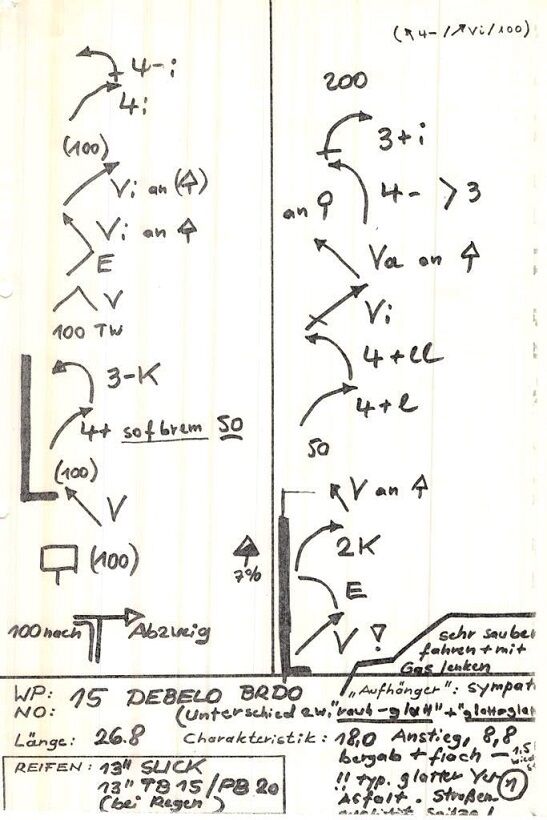 (↖4-/↗Vi/100)
4-i
4i
(100)
Vi an (
Vi an
E
V
100 TW
3-K
4+ sofbrem 50
(100)
V
(100)
7%
100 nach Abzweig
200
3+i
4- >3
an
Va an
Vi
4+ll
4+l
50
V an
2K
E
V !
sehr sauber
fahren + mit
Gas lenken
WP: 15 DEBELO BRDO
NO: (Unterschied zwi. "rauh-glatt" + "glatt-glat
"Aufhänger": sympat
Länge: 26.8 Charakteristik: 18,0 Anstieg, 8,8
bergab + flach - 1,5
!! typ. glatter
Asfalt. Straßen
REIFEN: 13" SLICK
13" TB 15 / PB 20
(bei Regen)
1